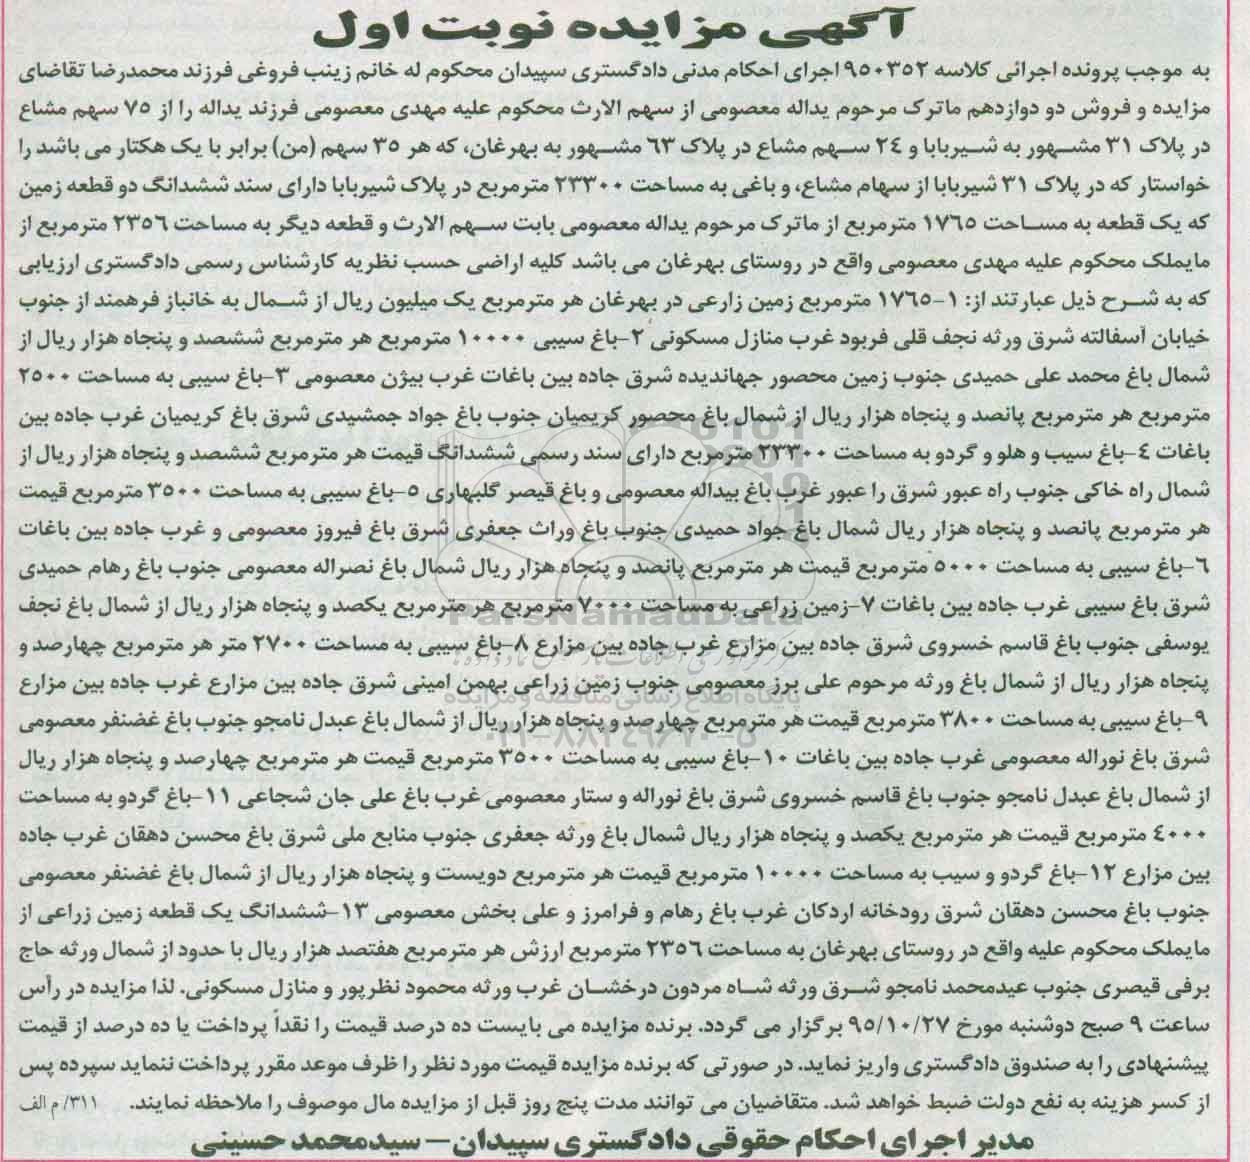 آگهی مزایده نوبت اول
به موجب پرونده اجرائی کلاسه ۹۵۰۳۵۲ اجرای احکام مدنی دادگستری سپیدان محکوم له خانم زینب فروغی فرزند محمدرضا تقاضای
مزایده و فروش دو دوازدهم ماترک مرحوم یداله معصومی از سهم الارث محکوم علیه مهدی معصومی فرزند یداله را از ۷۵ سهم مشاع
در پلاک ۳۱ مشهور به شیربابا و ۲۴ سهم مشاع در پلاک ۶۳ مشهور به بهرغان، که هر ۳۵ سهم (من) برابر با یک هکتار می باشد را
خواستار که در پلاک ۳۱ شیربابا از سهام مشاع، و باغی به مساحت ۲۳۳۰۰ مترمربع در پلاک شیربابا دارای سند ششدانگ دو قطعه زمین
که یک قطعه به مساحت ۱۷۶۵ مترمربع از ماترک مرحوم یداله معصومی بابت سهم الارث و قطعه دیگر به مساحت ۲۳۵۶ مترمربع از
مایملک محکوم علیه مهدی معصومی واقع در روستای بهرغان می باشد کلیه اراضی حسب نظریه کارشناس رسمی دادگستری ارزیابی
که به شرح ذیل عبارتند از: ۱-۱۷۶۵ مترمربع زمین زارعی در بهرغان هر مترمربع یک میلیون ریال از شمال به خانباز فرهمند از جنوب
خیابان آسفالته شرق ورثه نجف قلی فربود غرب منازل مسکونی ۲-باغ سیبی ۱۰۰۰۰ مترمربع هر مترمربع ششصد و پنجاه هزار ریال از
شمال باغ محمد علی حمیدی جنوب زمین محصور جهاندیده شرق جاده بین باغات غرب بیژن معصومی ۳-باغ سیبی به مساحت ۲۵۰۰
مترمربع هر مترمربع پانصد و پنجاه هزار ریال از شمال باغ محصور کریمیان جنوب باغ جواد جمشیدی شرق باغ کریمیان غرب جاده بین
باغات ۴-باغ سیب و هلو و گردو به مساحت ۲۳۳۰۰ مترمربع دارای سند رسمی ششدانگ قیمت هر مترمربع ششصد و پنجاه هزار ریال از
شمال راه خاکی جنوب راه عبور شرق را عبور غرب باغ بیداله معصومی و باغ قیصر گلبهاری ۵-باغ سیبی به مساحت ۳۵۰۰ مترمربع قیمت
هر مترمربع پانصد و پنجاه هزار ریال شمال باغ جواد حمیدی جنوب باغ وراث جعفری شرق باغ فیروز معصومی و غرب جاده بین باغات
۶-باغ سیبی به مساحت ۵۰۰۰ مترمربع قیمت هر مترمربع پانصد و پنجاه هزار ریال شمال باغ نصراله معصومی جنوب باغ رهام حمیدی
شرق باغ سیبی غرب جاده بین باغات ۷-زمین زراعی به مساحت ۷۰۰۰ مترمربع هر مترمربع یکصد و پنجاه هزار ریال از شمال باغ نجف
یوسفی جنوب باغ قاسم خسروی شرق جاده بین مزارع غرب جاده بین مزارع ۸-باغ سیبی به مساحت ۲۷۰۰ متر هر مترمربع چهارصد و
پنجاه هزار ریال از شمال باغ ورثه مرحوم علی برز معصومی جنوب زمین زراعی بهمن امینی شرق جاده بین مزارع غرب جاده بین مزارع
۹-باغ سیبی به مساحت ۳۸۰۰ مترمربع قیمت هر مترمربع چهارصد و پنجاه هزار ریال از شمال باغ عبدل نامجو جنوب باغ غضنفر معصومی
شرق باغ نوراله معصومی غرب جاده بین باغات ۱۰-باغ سیبی به مساحت ۳۵۰۰ مترمربع قیمت هر مترمربع چهارصد و پنجاه هزار ریال
از شمال باغ عبدل نامجو جنوب باغ قاسم خسروی شرق باغ نوراله و ستار معصومی غرب باغ علی جان شجاعی ۱۱-باغ گردو به مساحت
۴۰۰۰ مترمربع قیمت هر مترمربع یکصد و پنجاه هزار ریال شمال باغ ورثه جعفری جنوب منابع ملی شرق باغ محسن دهقان غرب جاده
بین مزارع ۱۲-باغ گردو و سیب به مساحت ۱۰۰۰۰ مترمربع قیمت هر مترمربع دویست و پنجاه هزار ریال از شمال باغ غضنفر معصومی
جنوب باغ محسن دهقان شرق رودخانه اردکان غرب باغ رهام و فرامرز و علی بخش معصومی ۱۳-ششدانگ یک قطعه زمین زراعی از
مایملک محکوم علیه واقع در روستای بهرغان به مساحت ۲۳۵۶ مترمربع ارزش هر مترمربع هفتصد هزار ریال با حدود از شمال ورثه حاج
برفی قیصری جنوب عیدمحمد نامجو شرق ورثه شاه مردون درخشان غرب ورثه محمود نظرپور و منازل مسکونی. لذا مزایده در رأس
ساعت ۹ صبح دوشنبه مورخ ۹۵/۱۰/۲۷ برگزار می گردد. برنده مزایده می بایست ده درصد قیمت را نقداً پرداخت یا ده درصد از قیمت
پیشنهادی را به صندوق دادگستری واریز نماید. در صورتی که برنده مزایده قیمت مورد نظر را ظرف موعد مقرر پرداخت ننماید سپرده پس
از کسر هزینه به نفع دولت ضبط خواهد شد. متقاضیان می توانند مدت پنج روز قبل از مزایده مال موصوف را ملاحظه نمایند. ۳۱۱/م الف
مدیر اجرای احکام حقوقی دادگستری سپیدان – سیدمحمد حسینی
ParsNamadData
پایگاه اطلاع رسانی مناقصه و مزایده
۰۲۱-۸۸۳۴۹۶۷۰-۵